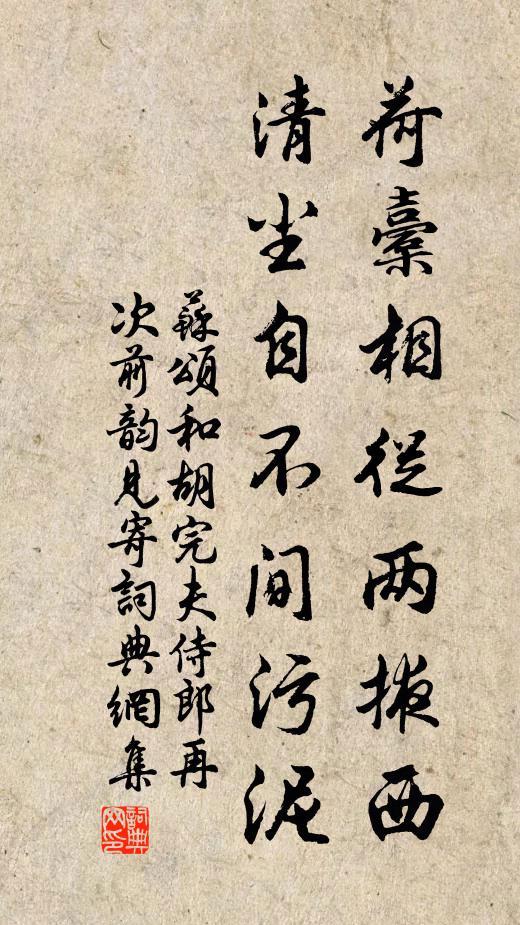 荷橐相從两掖西
清尘自不间污泥
蘇頌和胡完夫侍郎再
次前韵見寄詞典網集
詞典
网印